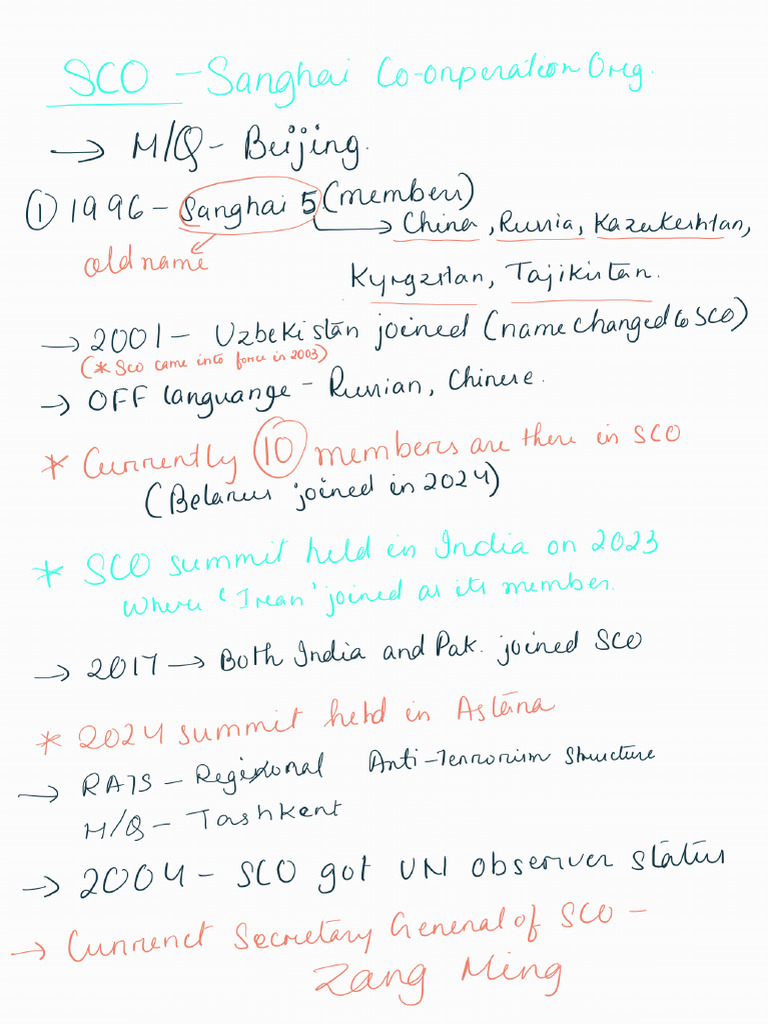 SCO - Sanghai Co-onperation Org.
→ H/Q - Beijing.
① 1996 - Sanghai 5 (members)
→ China, Russia, Kazakeshtan,
old name
Kyrgzstan, Tajikistan.
→ 2001 - Uzbekistan joined (name changed to SCO)
(* SCO came into force in 2003)
→ OFF languange - Russian, Chinese.
* Currently 10 members are there in SCO
(Belarus joined in 2024)
* SCO summit held in India on 2023
where 'Iran' joined as its member.
→ 2017 → Both India and Pak. joined SCO
* 2024 summit held in Astana
→ RATS - Regional Anti-Terrorism Structure
H/Q - Tashkent
→ 2004 - SCO got UN observer status
→ Currenct Secretary General of SCO -
Zang Ming